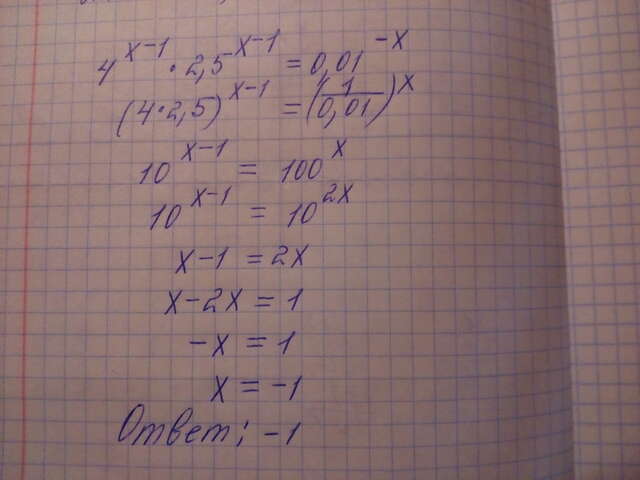 4^(x-1) · 2,5^(x-1) = 0,01^(-x)
(4·2,5)^(x-1) = (1/0,01)^x
10^(x-1) = 100^x
10^(x-1) = 10^(2x)
x-1 = 2x
x-2x = 1
-x = 1
x = -1
Ответ: -1